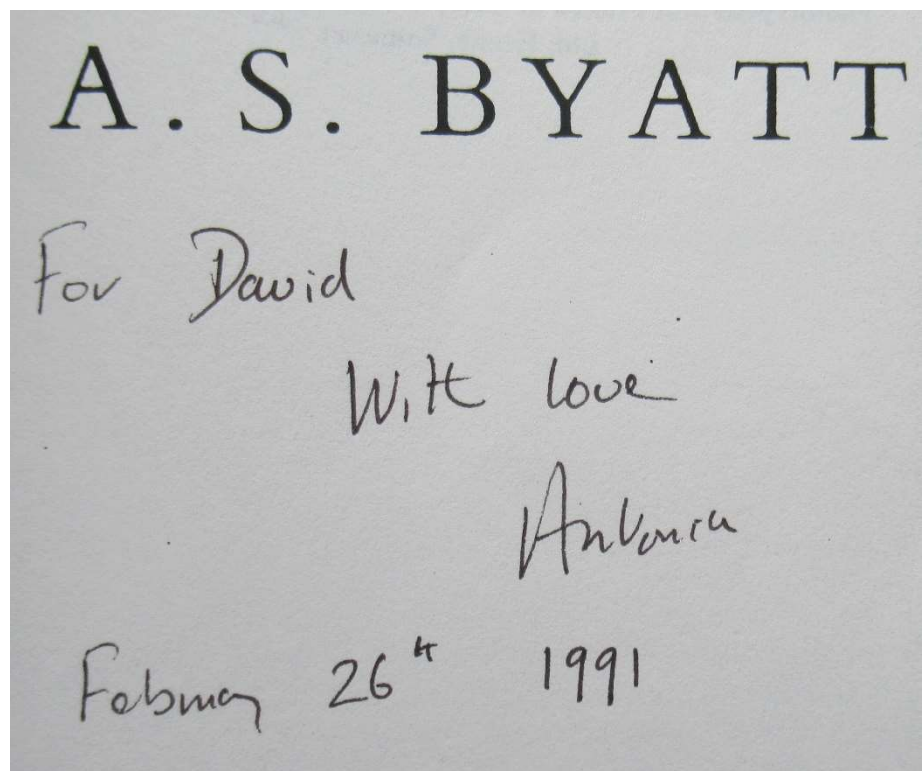 A. S. BYATT
For David
With love
Antonia
February 26th 1991